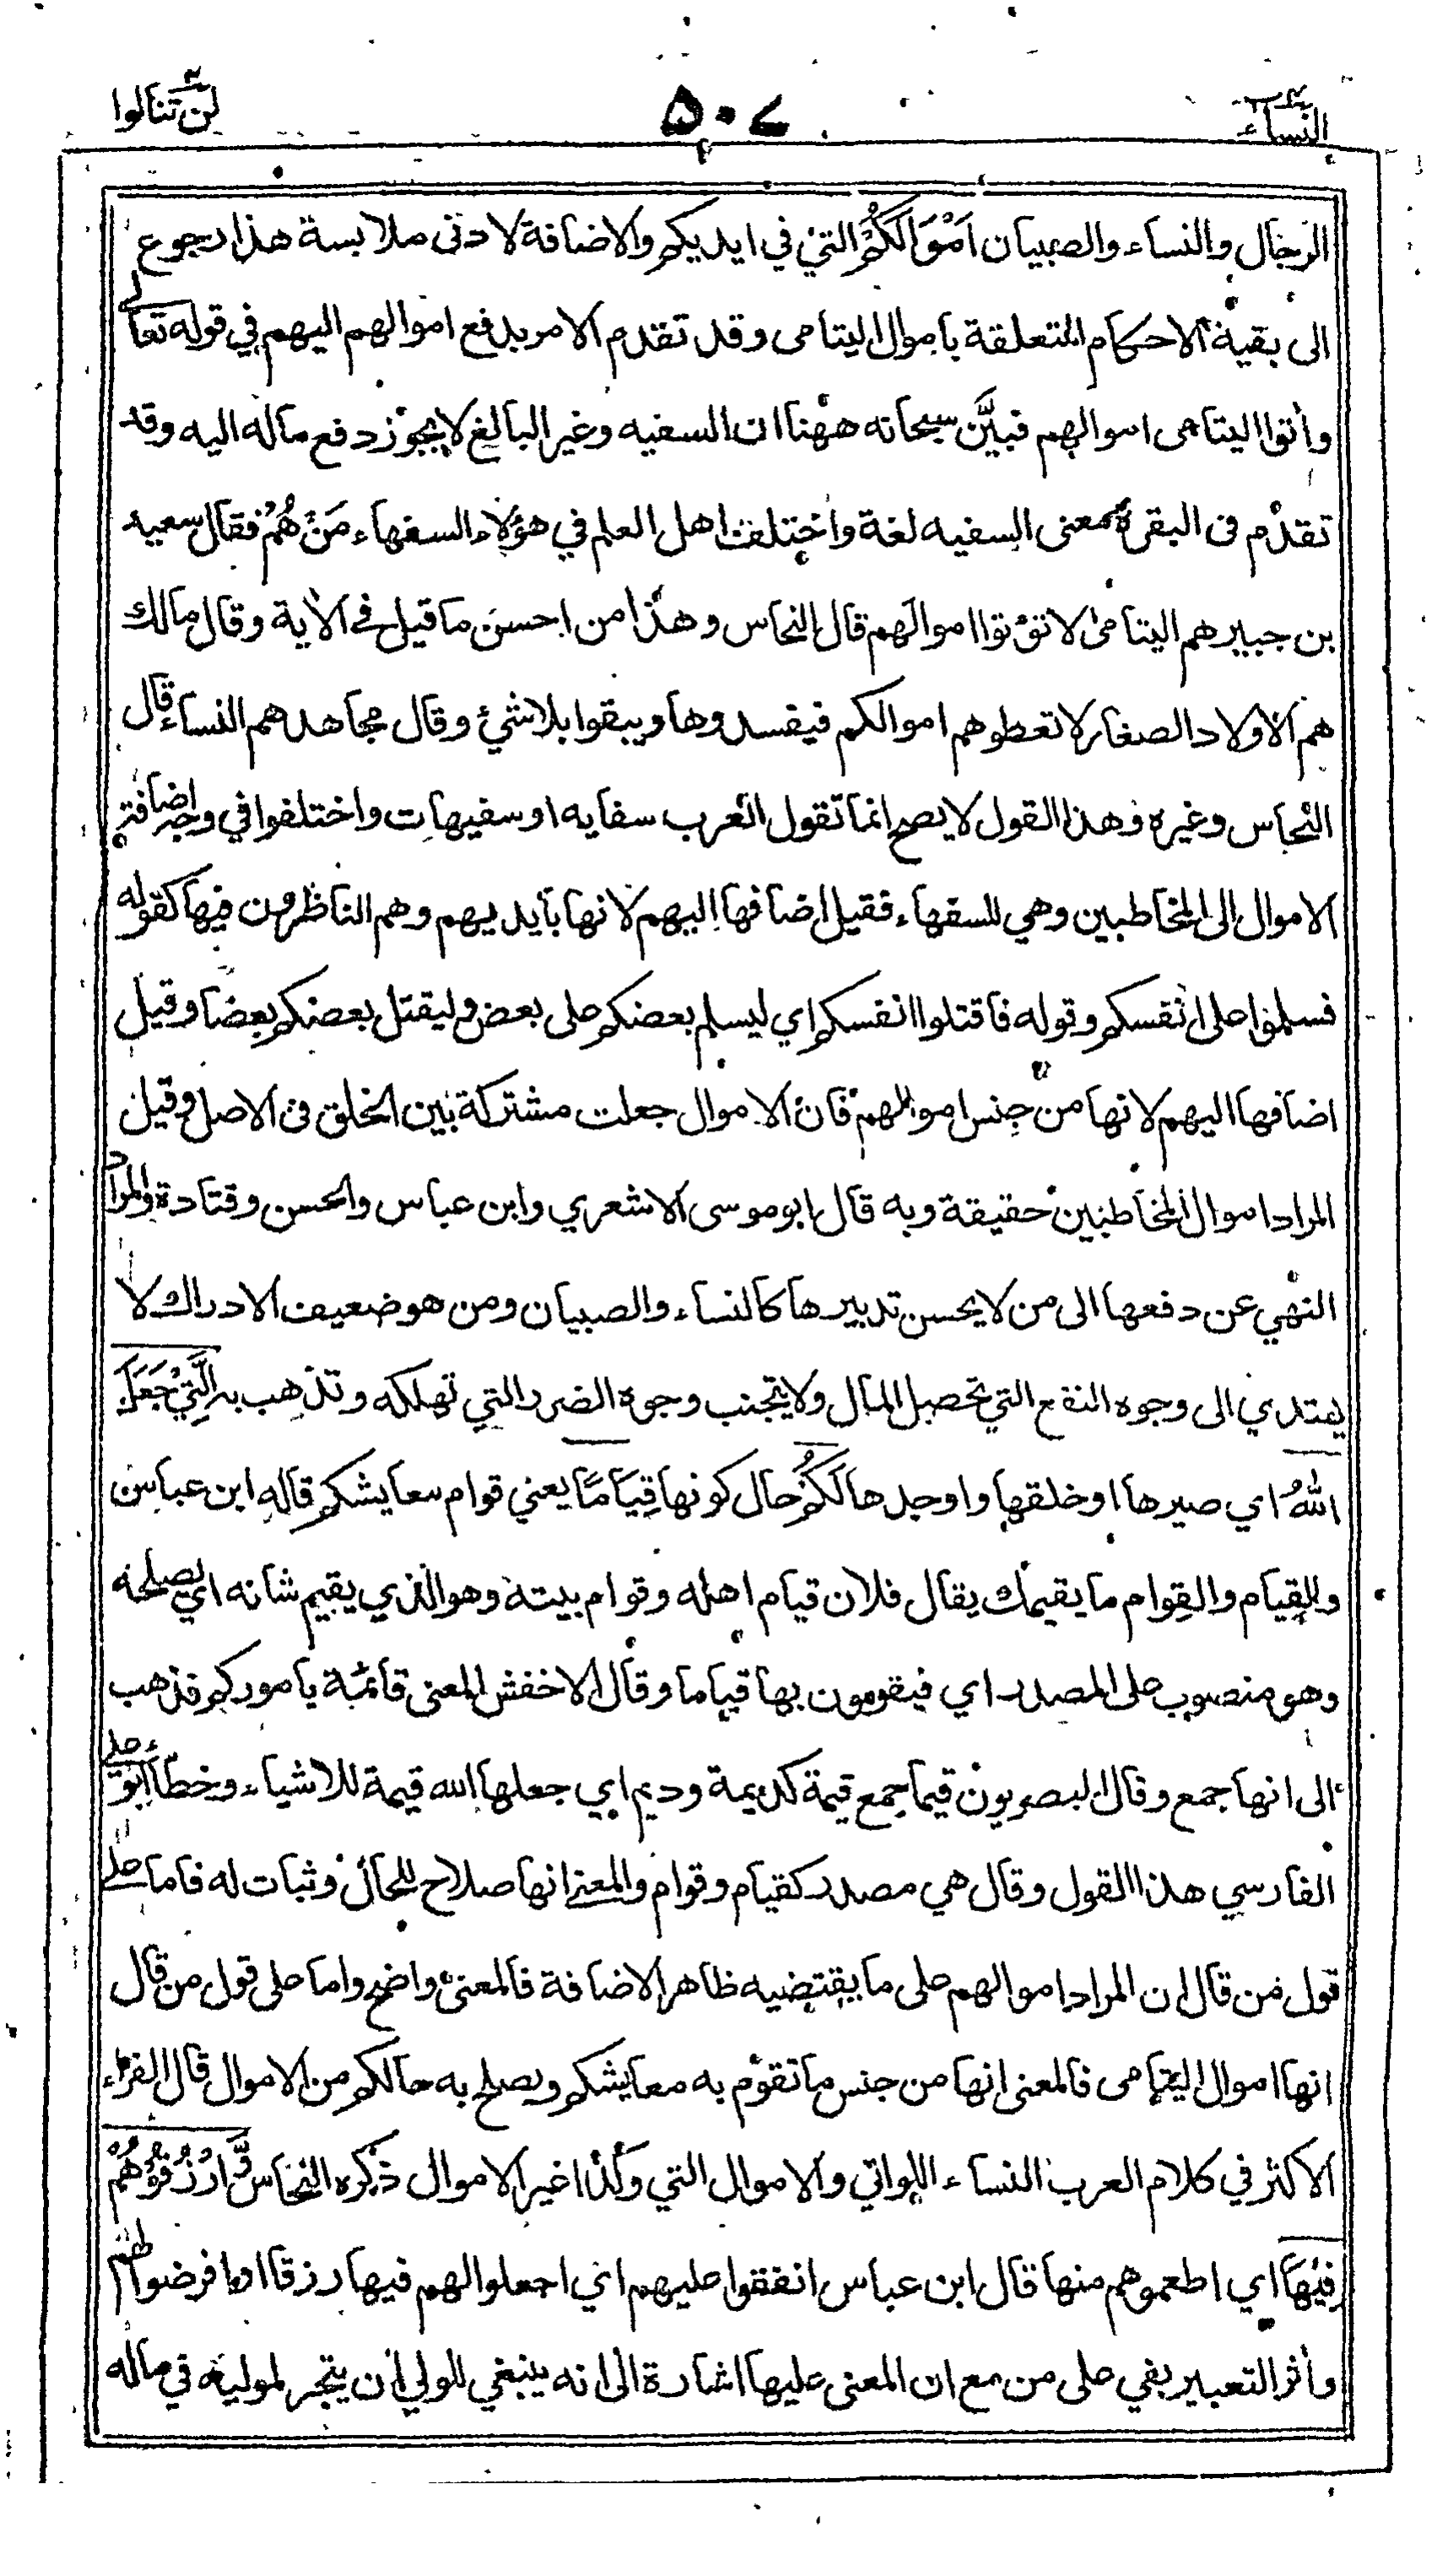 النساء ٤
٥٠٧
لن تنالوا ٤
الرجال والنساء والصبيان اَمْوَالَكُمُ التيْ في ايديكم والاضافة لادنى ملابسة هذا رجوع
الى بقية الاحكام المتعلقة باموال اليتامى وقد تقدم الامر بدفع اموالهم اليهم في قوله تعالى
وأتوا اليتامى اموالهم فبيَّن سبحانه ههنا ان السفيه وغير البالغ لا يجوز دفع ماله اليه وقد
تقدم فى البقرة معنى السفيه لغة واختلف اهل العلم في هؤلاء السفهاء مَنْ هُمْ فقال سعيد
بن جبير هم اليتامى لا تؤتوا اموالهم قال النحاس وهذا من احسن ما قيل في الأية وقال مالك
هم الاولاد الصغار لا تعطوهم اموالكم فيفسدوها ويبقوا بلا شئ وقال مجاهد هم النساء قال
النحاس وغيره وهذا القول لا يصح انما تقول العرب سفايه او سفيهات واختلفوا في وجه اضافة
الاموال الى المخاطبين وهي للسفهاء فقيل اضافها اليهم لانها بأيديهم وهم الناظرون فيها كقوله
فسلموا على انفسكم وقوله فاقتلوا انفسكم اي ليسلم بعضكم على بعض وليقتل بعضكم بعضا وقيل
اضافها اليهم لانها من جنس اموالهم فان الاموال جعلت مشتركة بين الخلق فى الاصل وقيل
المراد اموال المخاطبين حقيقة وبه قال ابو موسى الاشعري وابن عباس والحسن وقتادة والمراد
النهي عن دفعها الى من لا يحسن تدبيرها كالنساء والصبيان ومن هو ضعيف الادراك لا
يهتدي الى وجوه النفع التي تحصل المال ولا يتجنب وجوه الضرر التي تهلكه وتذهب به الَّتِيْ جَعَلَ
اللهُ اي صيرها او خلقها واوجدها لَكُمْ حال كونها قِيَامًا يعني قوام معايشكم قاله ابن عباس
والقيام والقوام ما يقيمك يقال فلان قيام اهله وقوام بيته وهو الذي يقيم شانه اي يصلحه
وهو منصوب على المصدر اي فيقومون بها قياما وقال الاخفش المعنى قائمة بأموركم فذهب
الى انها جمع وقال البصريون قيما جمع قيمة كديمة وديم اي جعلها الله قيمة للاشياء وخطأ ابو علي
الفارسي هذا القول وقال هي مصدر كقيام وقوام والمعنى انها صلاح للحال وثبات له فاما على
قول من قال ان المراد اموالهم على ما يقتضيه ظاهر الاضافة فالمعنى واضح واما على قول من قال
انها اموال اليتامى فالمعنى انها من جنس ما تقوم به معايشكم ويصلح به حالكم من الاموال قال الفراء
الاكثر في كلام العرب النساء اللواتي والاموال التي وكذا غير الاموال ذكره النحاس وَّارْزُقُوْهُمْ
فِيْهَا اي اطعموهم منها قال ابن عباس انفقوا عليهم اي اجعلوا لهم فيها رزقا او افرضوا لهم
وأثر التعبير بفي على من مع ان المعنى عليها اشارة الى انه ينبغي للولي ان يتجر لموليه في ماله